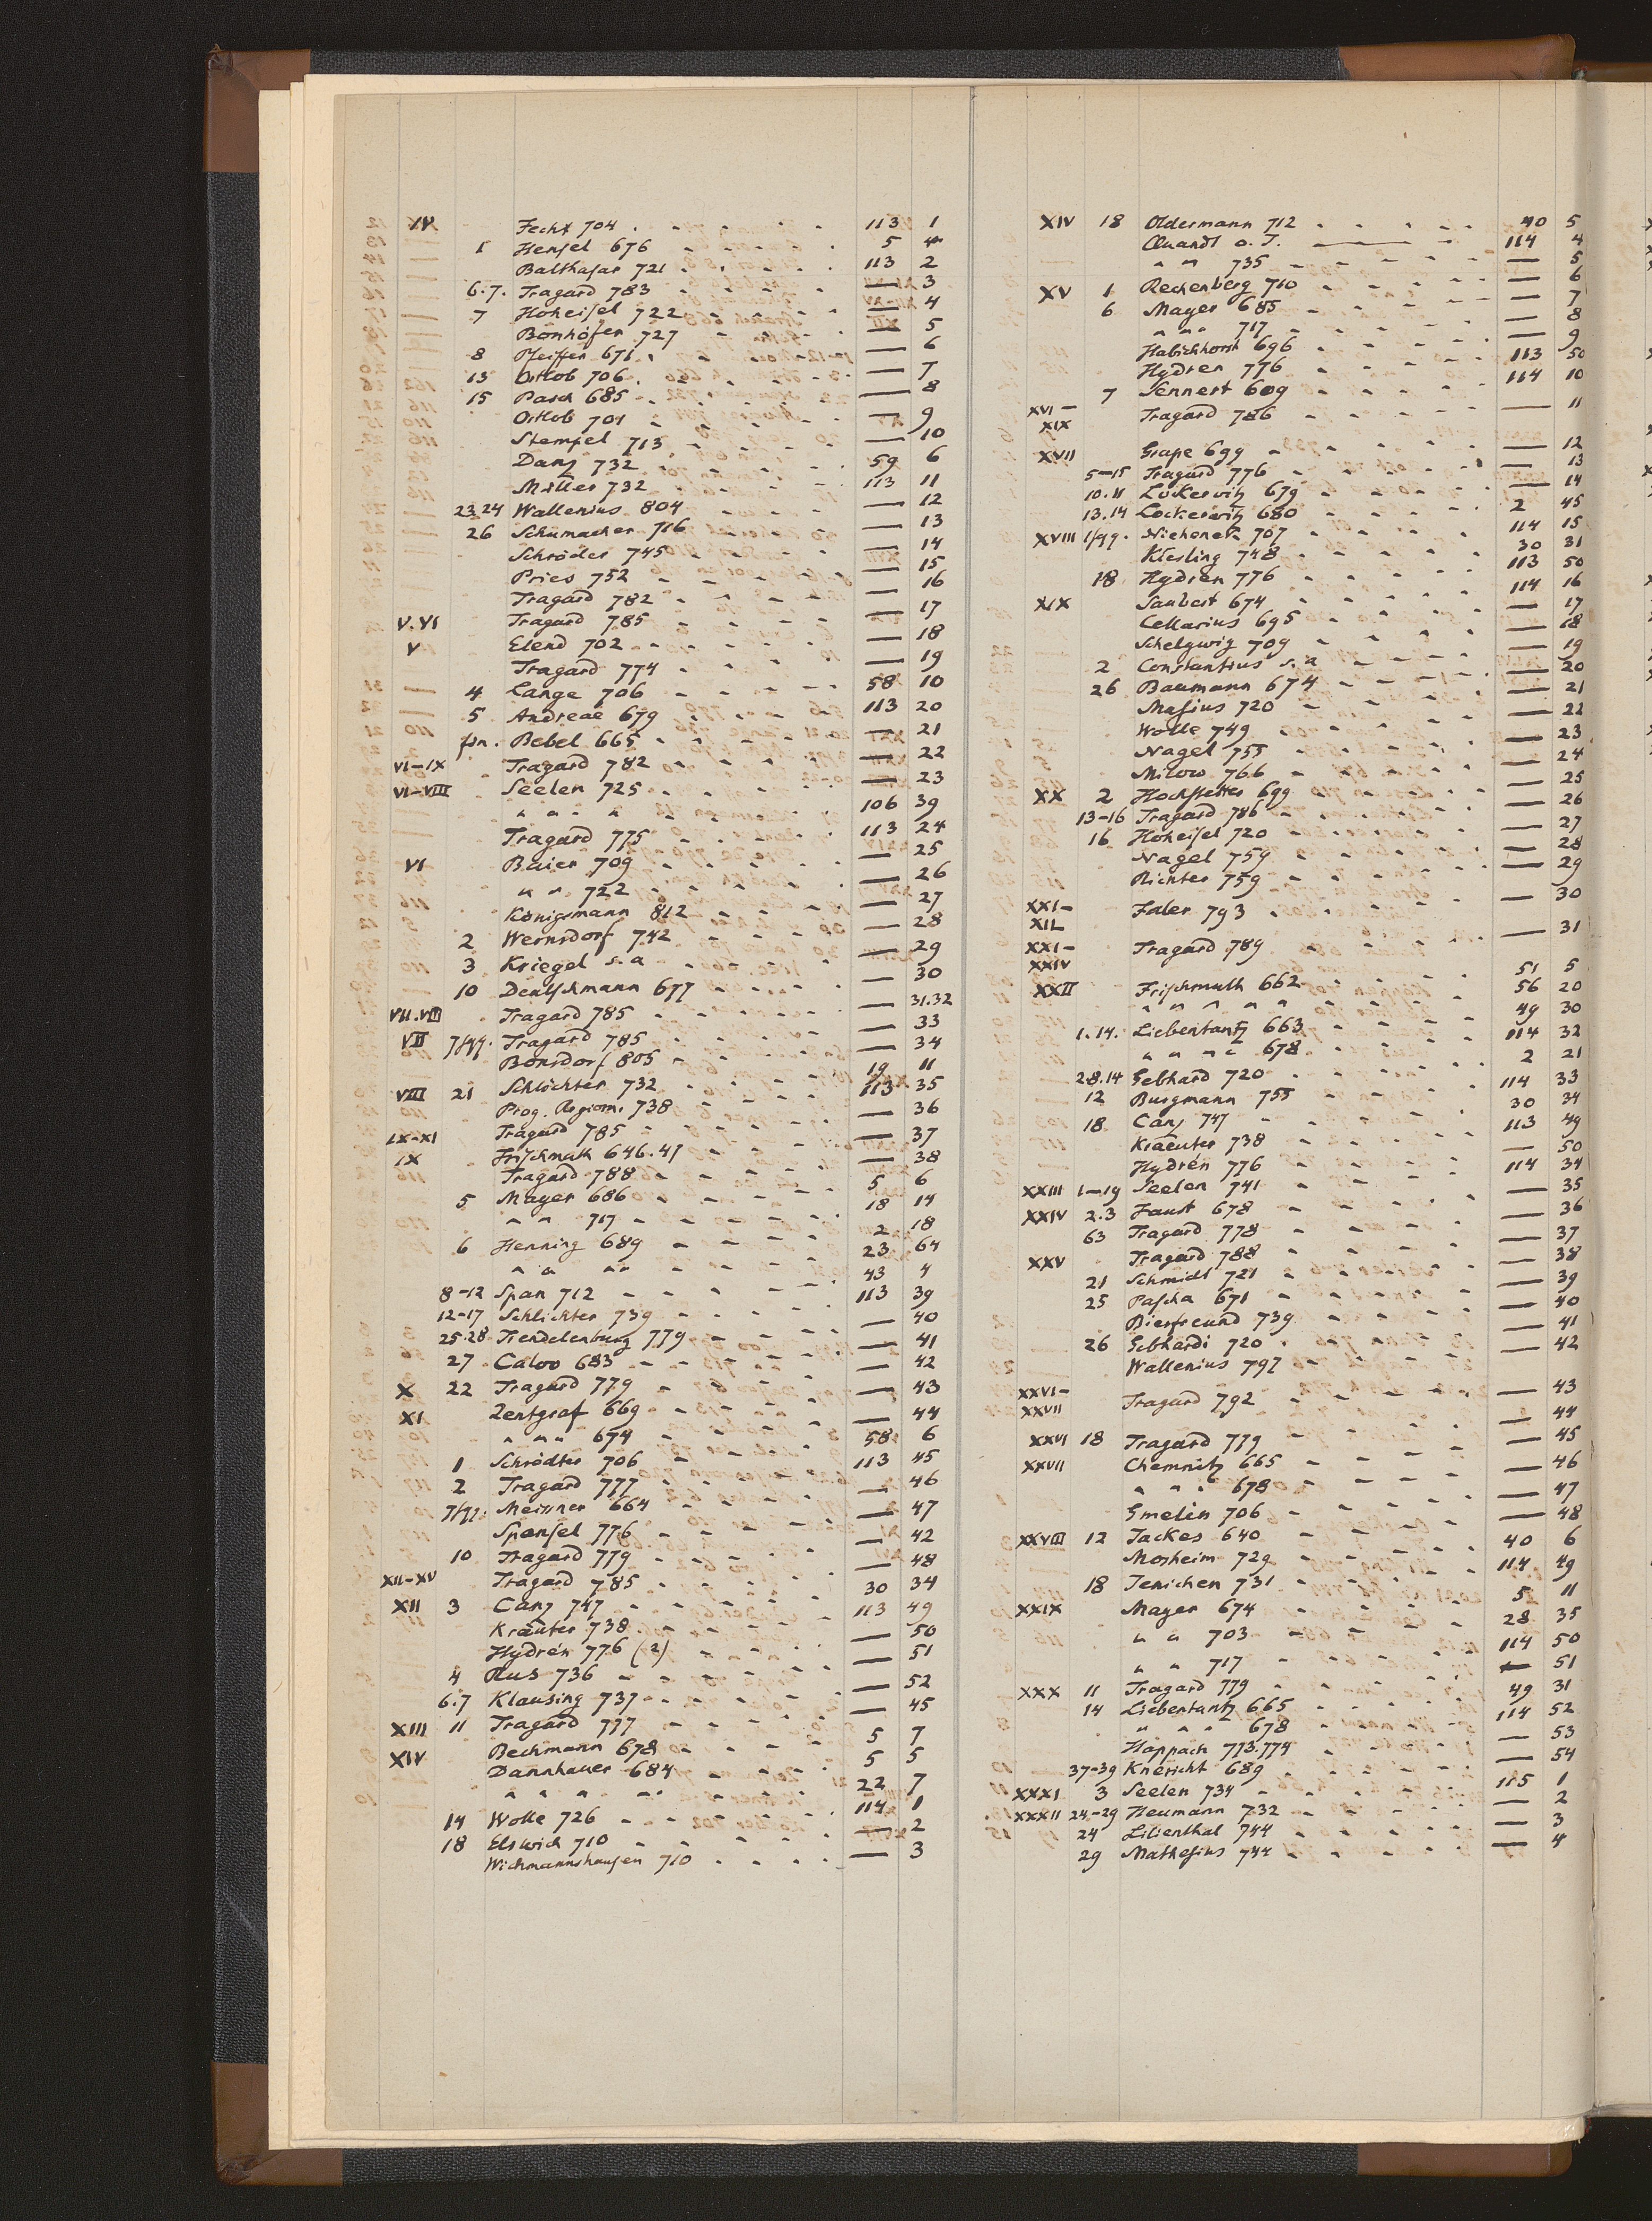 IV Fecht 704 113 1
1 Hensel 676 5 4
Balthasar 721 113 2
6.7. Tragard 783 — 3
7 Hoheisel 722 — 4
Bonhöfer 727 — 5
8 Pfeiffer 671 — 6
13 Ortlob 706 — 7
15 Pasch 685 — 8
Ortlob 701 — 9
Stempel 713 — 10
Danz 732 59 6
Miller 732 113 11
23.24 Wallenius 804 — 12
26 Schumacher 716 — 13
Schröder 745 — 14
Pries 752 — 15
Tragard 782 — 16
V.VI Tragard 785 — 17
V Elend 702 — 18
Tragard 774 — 19
4 Lange 706 58 10
5 Andreae 679 113 20
fin. Bebel 665 — 21
VI-IX Tragard 782 — 22
VI-VIII Seelen 725 — 23
" " " " 106 39
Tragard 775 113 24
VI Baier 709 — 25
" " 722 — 26
Königsmann 812 — 27
2 Wernsdorf 742 — 28
3 Kriegel s.a — 29
10 Deutschmann 677 — 30
VII.VIII Tragard 785 — 31.32
VII 7fqq. Tragard 785 — 33
Bonsdorf 805 — 34
19 11
VIII 21 Schlichter 732 113 35
Prog. Regiom. 738 — 36
IX-XI Tragard 785 — 37
IX Frischmuth 646.47 — 38
Tragard 788 5 6
5 Mayer 686 18 14
" " 717 2 18
6 Henning 689 23 64
" " " " 43 4
8-12 Span 712 113 39
12-17 Schlichter 739 — 40
25-28 Trendelenburg 779 — 41
27 Calov 683 — 42
X 22 Tragard 779 — 43
XI Zentgraf 669 — 44
" " " 674 58 6
1 Schrödter 706 113 45
2 Tragard 777 — 46
7fqq. Meisner 664 — 47
Spansel 776 — 42
10 Tragard 779 — 48
XII-XV Tragard 785 30 34
XII 3 Canz 747 113 49
Kraeuter 738 — 50
Hydrén 776 (2) — 51
4 Rus 736 — 52
6.7 Klausing 737 — 45
XIII 11 Tragard 777 5 7
XIV Bechmann 678 5 5
Dannhauer 684 22 7
" " " " 114 1
14 Wolle 726 — 2
18 Elswich 710 — 3
Wichmannshausen 710
XIV 18 Oldermann 712 40 5
Quandt o. J. 114 4
" " 735 — 5
XV 1 Rechenberg 710 — 6
6 Mayer 685 — 7
" " " 717 — 8
Habichhorst 696 — 9
Hydren 776 113 50
7 Sennert 609 114 10
XVI-XIX Tragard 786 — 11
XVII Grape 699 — 12
5-15 Tragard 776 — 13
10.11 Lockerwitz 679 — 14
13.14 Lockerwitz 680 2 45
XVIII 1fqq. Niehenck 707 114 15
Kiesling 748 30 31
18 Hydren 776 113 50
XIX Saubert 674 114 16
Cellarius 695 — 17
Schelgwig 709 — 18
2 Constantius s. a — 19
26 Baumann 674 — 20
Masius 720 — 21
Wolle 749 — 22
Nagel 755 — 23
Milow 766 — 24
XX 2 Hochstetter 699 — 25
13-16 Tragard 786 — 26
16 Hoheisel 720 — 27
Nagel 759 — 28
Richter 759 — 29
XXI-XIL Faler 793 — 30
XXI-XXIV Tragard 789 — 31
XXII Frischmuth 662 51 5
" " " " " 56 20
1.14. Liebentantz 663 49 30
" " " " 678 114 32
2.8.14 Gebhard 720 2 21
12 Burgmann 755 114 33
18 Canz 747 30 34
Kraeuter 738 113 49
Hydrén 776 — 50
XXIII 1-19 Seelen 741 114 34
XXIV 2.3 Faust 678 — 35
63 Tragard 778 — 36
XXV Tragard 788 — 37
21 Schmidt 721 — 38
25 Pascha 671 — 39
Bierfreund 739 — 40
26 Gebhardi 720 — 41
Wallenius 797 — 42
XXVI-XXVII Tragard 792 — 43
XXVI 18 Tragard 779 — 44
XXVII Chemnitz 665 — 45
" " " 678 — 46
Gmelin 706 — 47
XXVIII 12 Jackes 640 — 48
Mosheim 729 40 6
18 Jenichen 731 114 49
XXIX Mayer 674 5 11
" " 703 28 35
" " 717 114 50
XXX 11 Tragard 779 — 51
14 Liebentantz 665 49 31
" " " 678 114 52
Happach 773.774 — 53
37-39 Knericht 689 — 54
XXXI 3 Seelen 734 115 1
XXXII 24-29 Heumann 732 — 2
24 Lilienthal 744 — 3
29 Mathesius 744 — 4